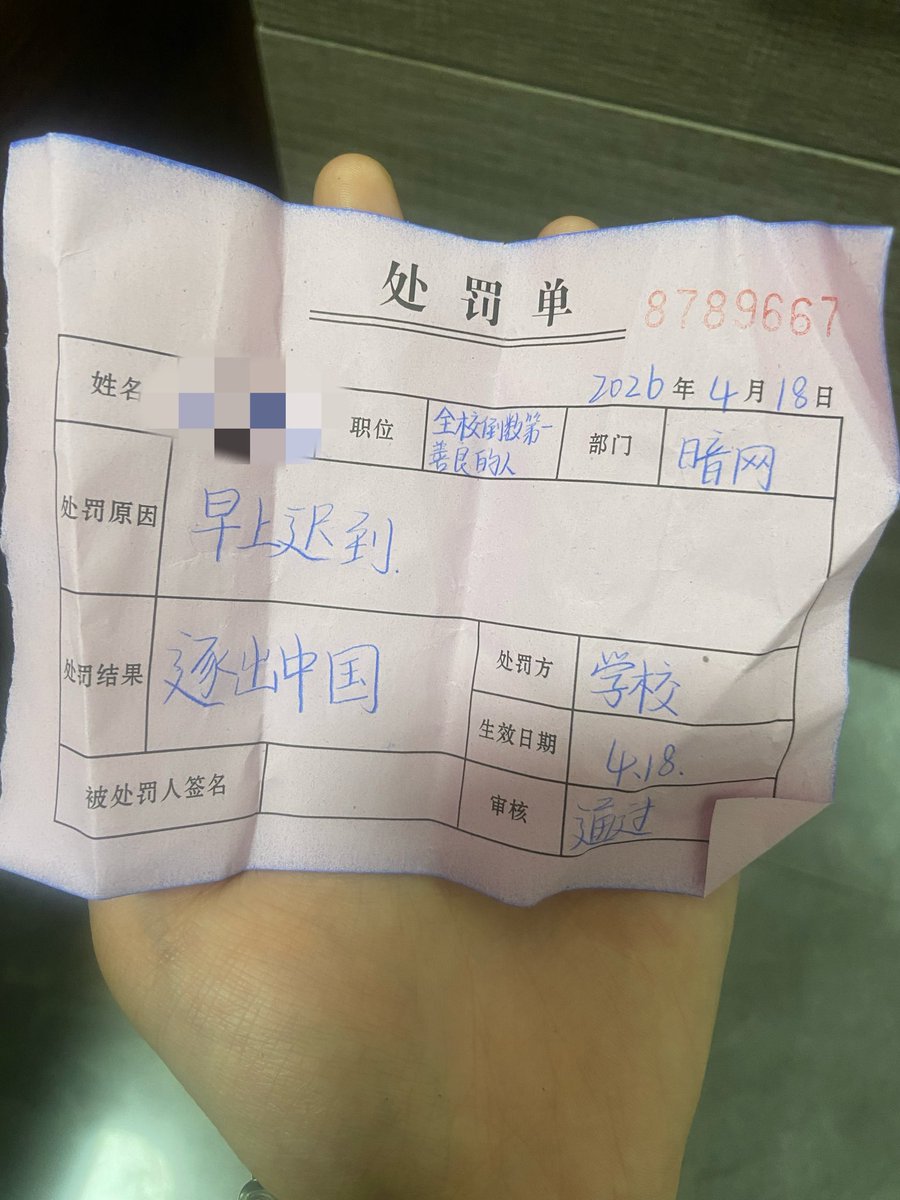 处罚单 8789667
2026年4月18日
姓名 职位 全校倒数第一善良的人 部门 暗网
处罚原因 早上迟到.
处罚结果 逐出中国 处罚方 学校
生效日期 4.18.
被处罚人签名 审核 通过